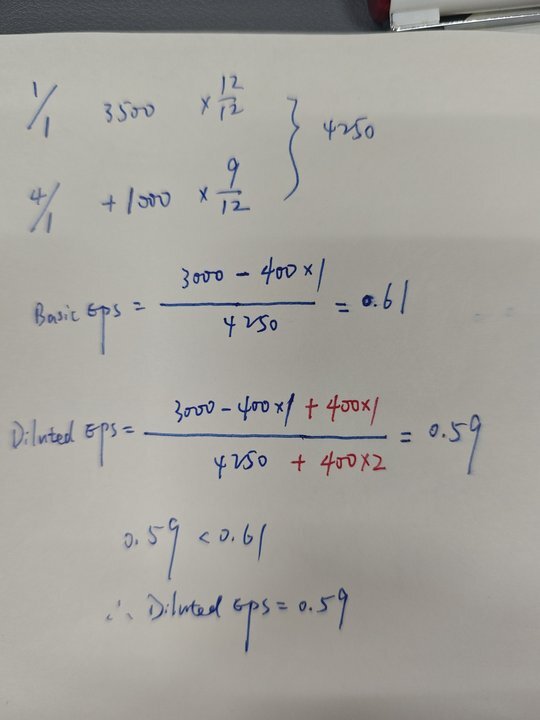 1/1 3500 × 12/12 } 4250
4/1 +1000 × 9/12
Basic EPS = (3000 - 400×1)/4250 = 0.61
Diluted EPS = (3000 - 400×1 + 400×1)/(4250 + 400×2) = 0.59
0.59 < 0.61
∴ Diluted EPS = 0.59